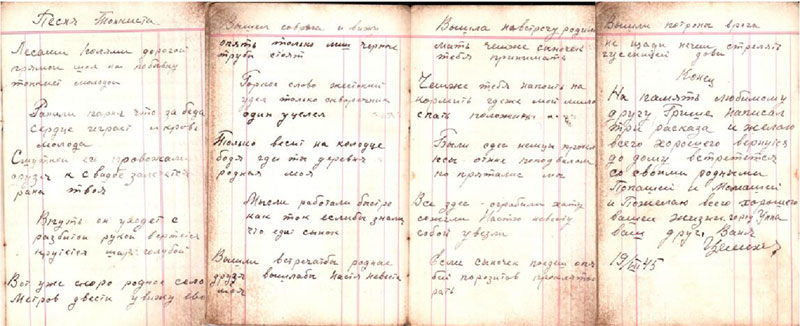 Песня Танкиста
Лесами полями дорогой
прямой шол на побавку
танкист молодой
Ранили парня что за беда
сердце играет и кровь
молода
Смеялись его провожали
друзья к свадьбе залечется
рана твоя
В путь он уходет с
разбитой рукой вертется
крутется шар голубой
Вот уже скоро родное село
Метров двести увижу его
Вышел соврага и вижу
опять только лиш черные
трубы стоят
Горкое слово жестокий
удел только скворечник
один уцелел
Только весит на колодце
бодя где ты деревня
родная моя
Мысли работали быстро
как ток еслибы знали
что едит сынок
Вышли встречатьбы родные
друзья вышлабы Настя невеста
моя
Вышила навстречу родимая
мать чемже сыночек
тебя принимать
Чемже тебя напоить на
кормить где же мой милый
спать положить
Были сдесь немцы
мы
Все здесь ограбили хату
сожгли Настю невесту
собой увезли
Если сыночек поедиш опять
бей паразитов проклятых
рать
Вышли патроны врага
не щади нечем стрелять
гусеницей дови
Конец
На память любимому
другу Грише написал
три расказа и желаю
всего хорошего вернутся
до дому встретется
со своими родными
Папашей и Мамашей
и Пожелаю всего хорошего
вашей жизни
ваш друг Ваня
19/VIII 45